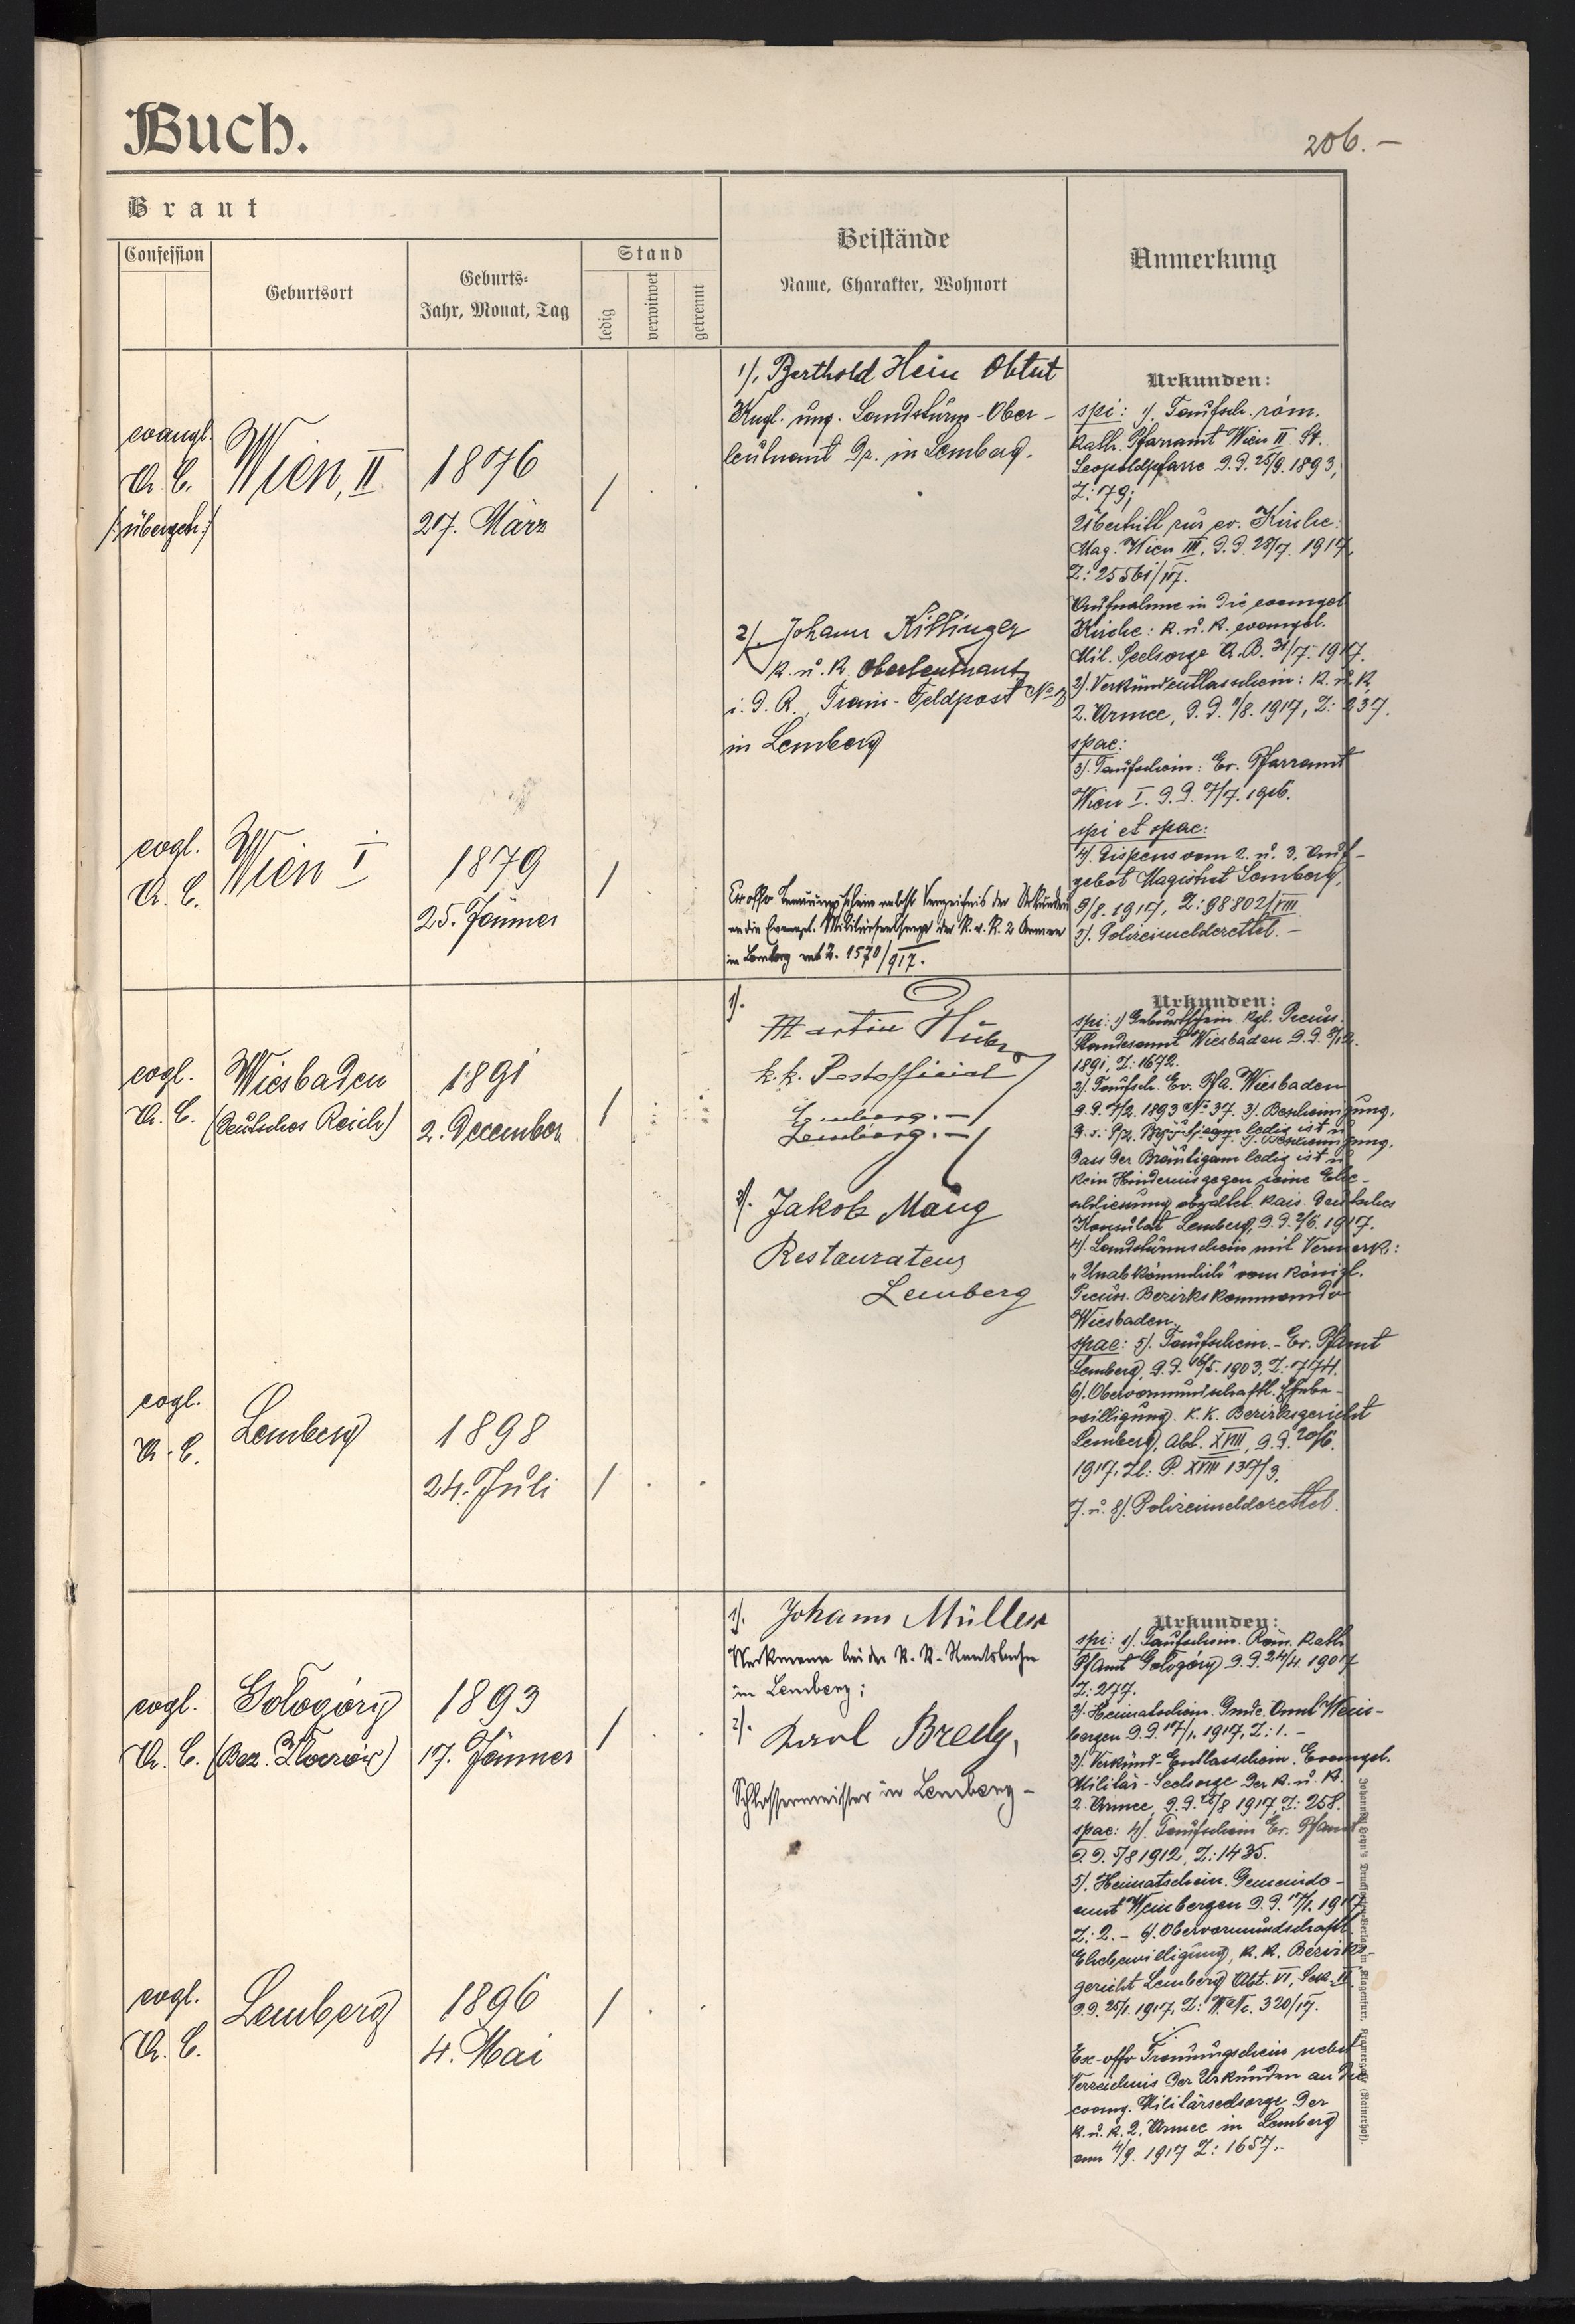 Buch.
206.-
Braut
Confession
Geburtsort
Geburts-
Jahr, Monat, Tag
Stand
ledig
verwitwet
getrennt
Beistände
Name, Charakter, Wohnort
Anmerkung
evangl.
A. C.
/:übergetr:/
Wien, II.
1876
27. März
/
1/. Berthold Hein Obtlt
Kngl. ung. Landsturm-Ober-
leutnant Dz. in Lemberg.
2/. Johann Killinger
k. u. k. Oberleutnant
i. d. R., Train-Feldpost No
in Lemberg
evgl.
A. C.
Wien I
1879
25. Jänner
/
Ex offo Trauungsschein nebst Verzeichnis der Urkunden
an die Evangel. Militärseelsorge der k. u. k. 2 Armee
in Lemberg sub Z. 1570/917.
Urkunden:
spi: 1/. Taufsch. röm.
kath. Pfarramt Wien II. St.
Leopoldpfarre d.d. 25/9. 1893,
Z: 79;
Übertritt zur ev. Kirche:
Mag. Wien III, d.d. 28/7. 1917,
Z: 25561/17.
Aufnahme in die evangel.
Kirche: k. u. k. evangel.
Mil. Seelsorge A. B. 31/7. 1917.
2/. Verkündentlasschein: k. u. k.
2. Armee, d.d. 11/8. 1917, Z: 237.
spae:
3/. Taufschein: Ev. Pfarramt
Wien I. d.d. 7/7. 1916.
spi et spae:
4/. Dispens vom 2. u. 3. Auf-
gebot Magistrat Lemberg,
9/8. 1917, Z: 98802/VIII
5/. Polizeimeldezettel.-
evgl.
A. C.
Wiesbaden
(Deutsches Reich)
1891
2. December
/
1/.
Martin Huber
k.k. Postofficial
Lemberg.-
Lemberg.-
2/. Jakob Maug
Restaurateur
Lemberg
evgl.
A. C.
Lemberg
1898
24. Juli
/
Urkunden:
spi: 1/ Geburtsschein. kgl. Preuss.
Standesamt Wiesbaden d.d. 8/12.
1891, Z: 1672.
2/. Taufsch. Ev. Pfa. Wiesbaden
d.d. 7/2. 1893 No 37. 3/. Bescheinigung,
dass der Bräutigam ledig ist u.
kein Hindernis gegen seine Ehe-
schliessung obwaltet. Kais. Deutsches
Konsulat Lemberg, d.d. 2/6. 1917.
4/. Landsturmschein mit Vermerk:
„Unabkömmlich" vom königl.
Preuss. Bezirkskommando
Wiesbaden.
spae: 5/. Taufschein.- Ev. Pfamt
Lemberg, d.d. 16/5. 1903, Z: 1774.
6/. Obervormundschaftl. Ehebe-
willigung. k. k. Bezirksgericht
Lemberg, Abt. XVIII, d.d. 20/6.
1917, Zl: P. XVIII 137/3.
7. u. 8/. Polizeimeldezettel.
evgl.
A. C.
Gologóry
(Bez. Złoczów)
1893
17. Jänner
/
1/. Johann Müller
Werkmann bei der k. k. Staatsbahn
in Lemberg;
2/. Karl Bredy,
Schlossermeister in Lemberg-
evgl.
A. C.
Lemberg
1896
4. Mai
/
Urkunden:
spi: 1/. Taufschein. Röm. kath
Pfamt Gologóry d.d. 24/4. 1907
Z: 277.
2/. Heimatschein. Gmde. Amt Wein-
bergen d.d. 17/1. 1917, Z: 1.-
3/. Verkünd-Entlasschein. Evangel.
Militär-Seelsorge der k. u. k.
2. Armee, d.d. 25/8 1917, Z: 258.
spae: 4/. Taufschein Ev. Pfamt
d.d. 5/8 1912, Z: 1435.
5/. Heimatschein. Gemeinde-
amt Weinbergen d.d. 17/1. 1917,
Z: 2.- 6/. Obervormundschaftl.
Ehebewilligung, k. k. Bezirks-
gericht Lemberg Abt. VI, Sek. II,
d.d. 25/1. 1917, Z: Nc. 320/17.
Ex-offo Trauungsschein nebst
Verzeichnis der Urkunden an die
evang. Militärseelsorge der
k. u. k. 2. Armee in Lemberg
am 4/9. 1917 Z: 1657.-